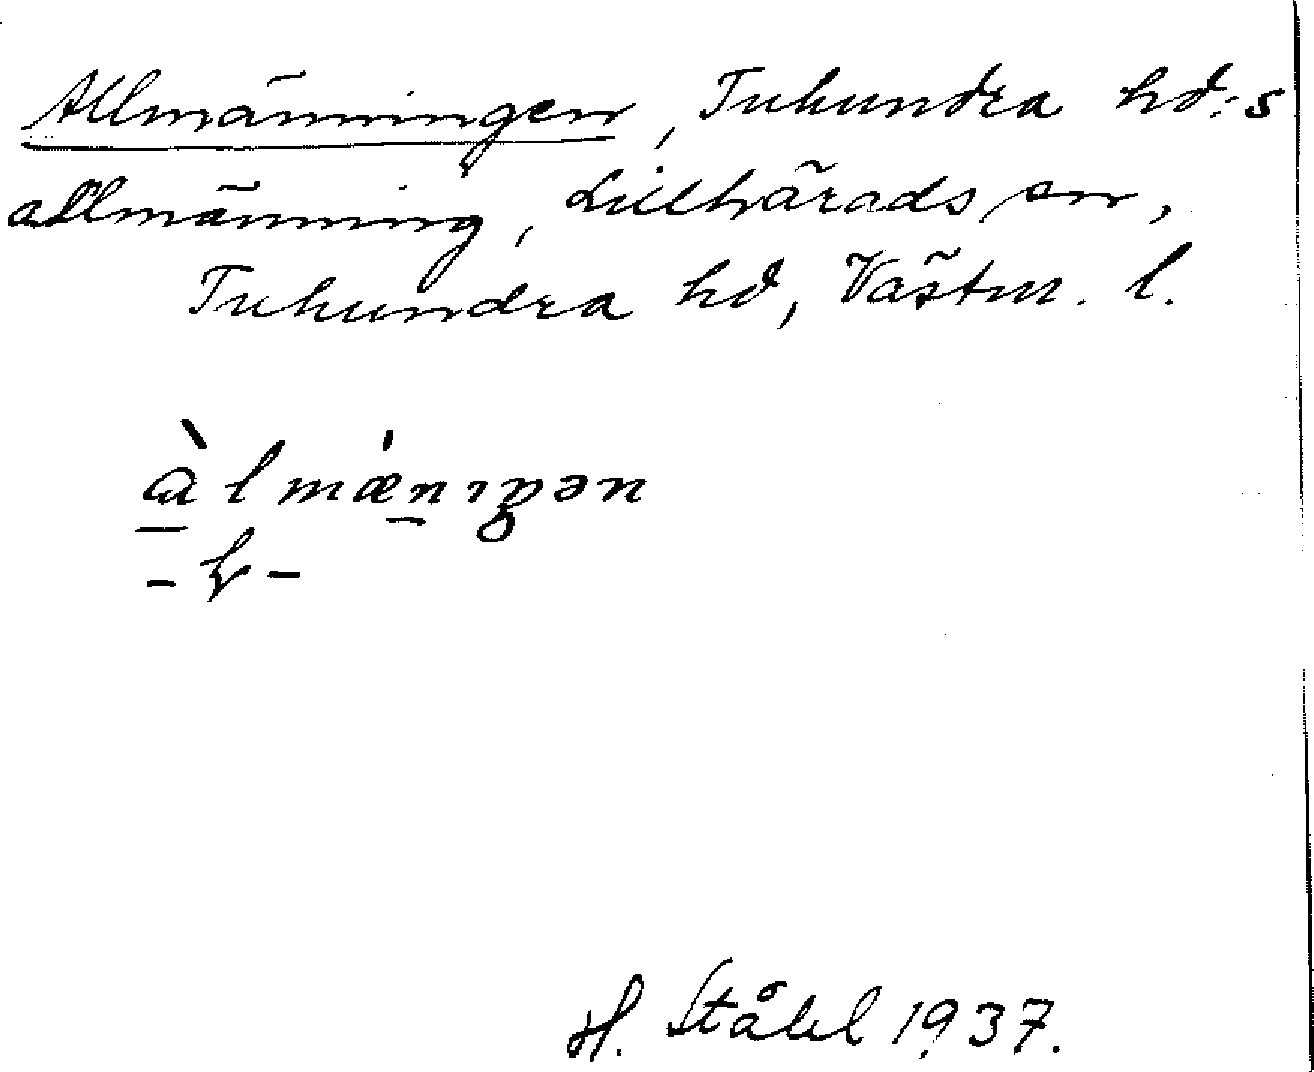 Allmänningen, Tuhundra hd:s
allmänning, Lillhärads sn,
Tuhundra hd, Västm. l.
àlmæ̀nıŋən
H. Ståhl 1937.